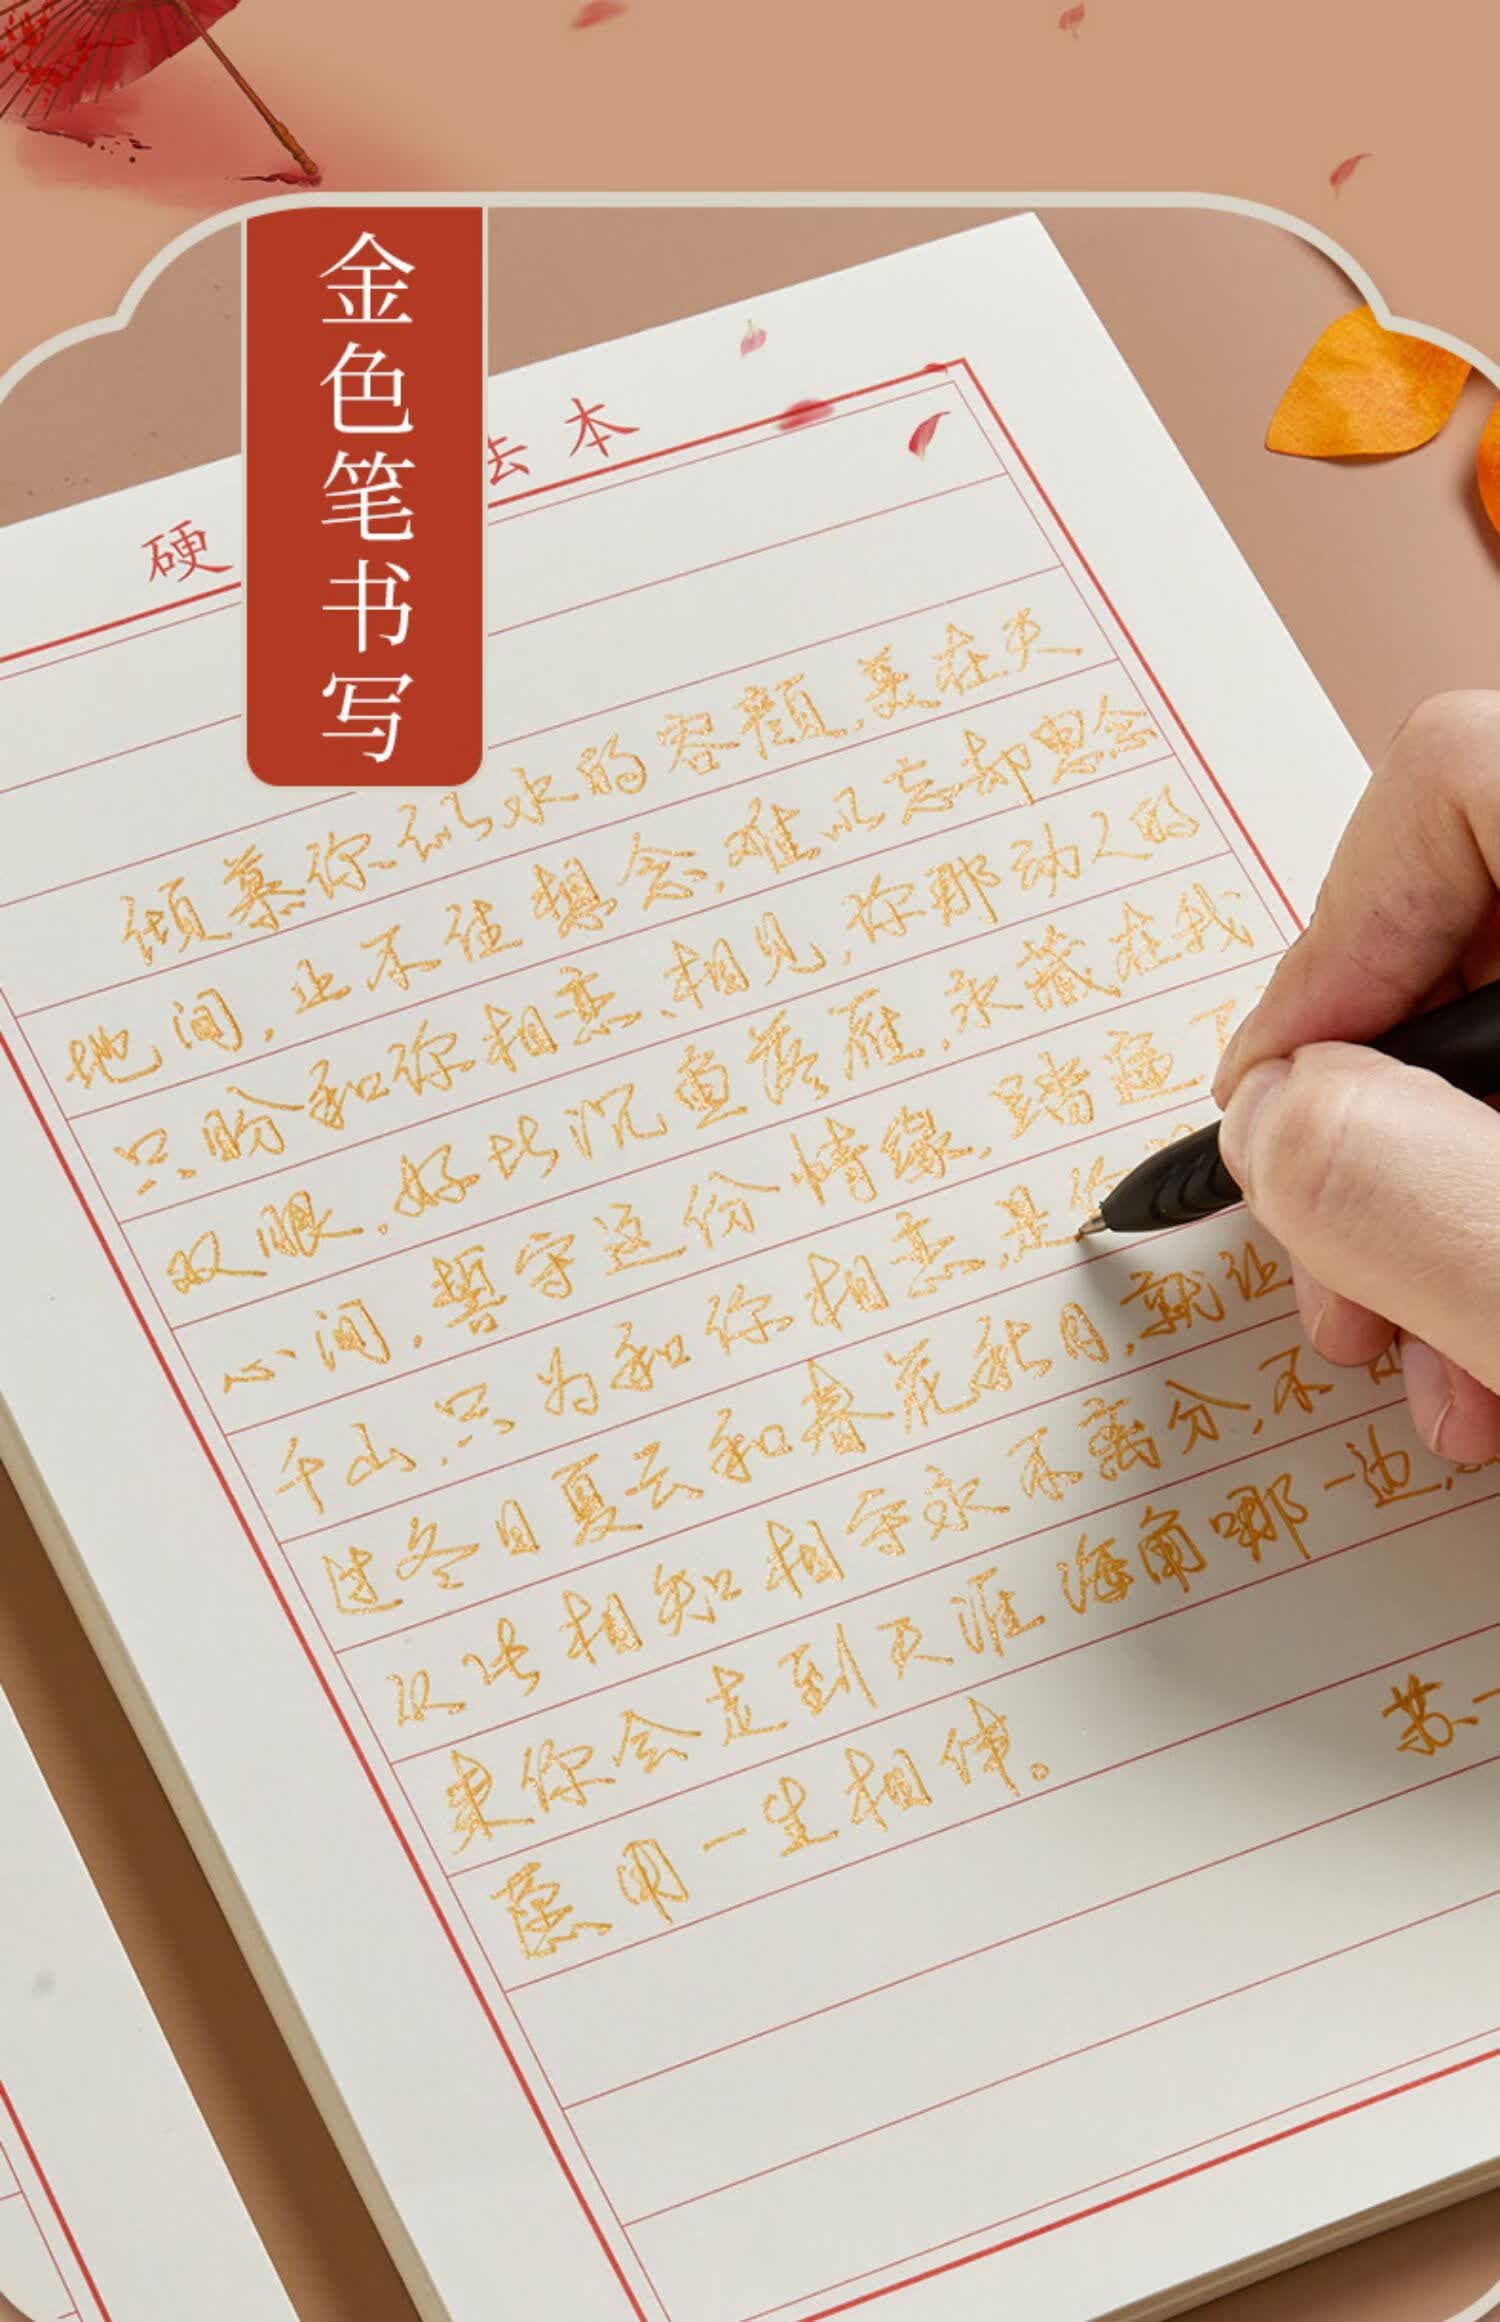 金色笔书写
硬 法本
倾慕你似水的容颜,美在天
地间,止不住想念,难以忘却思念
只盼和你相恋、相见,你那动人的
双眼,好比沉鱼落雁,永藏在我
心间,誓守这份情缘,踏遍了
千山,只为和你相恋,是你
过冬日夏云和春花秋月,就让
从此相知相守永不离分,不
来你会走到天涯海角哪一边,
愿用一生相伴。
苏一